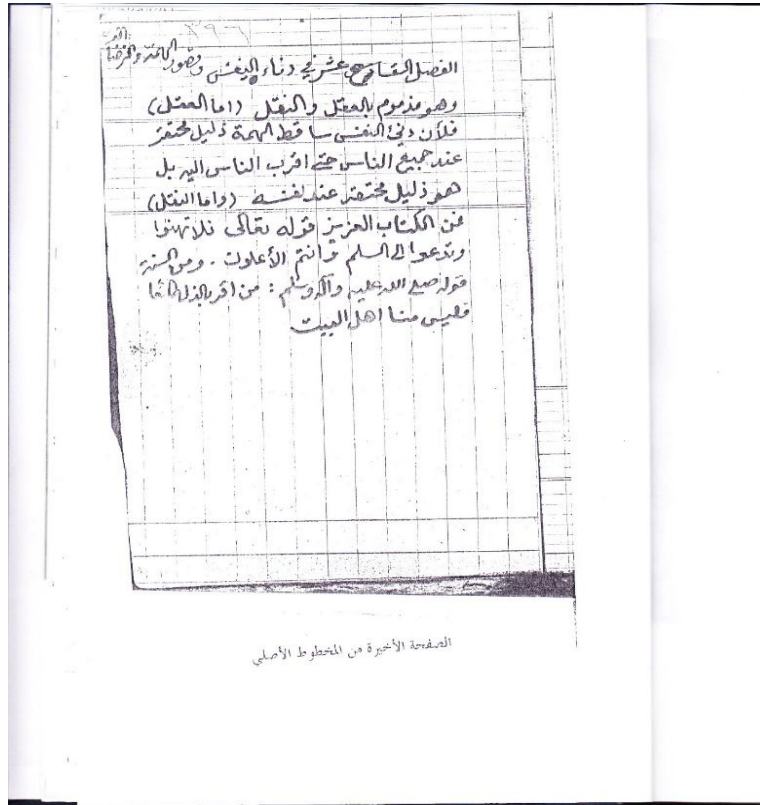 ٣٩٦
الفصل التاسع عشر في دناءة النفس وقصور الهمة والرضا
وهو مذموم بالعقل والنقل (اما العقل)
فلأن دنئ النفس ساقط الهمة ذليل محتقر
عند جميع الناس حتى اقرب الناس اليه بل
هو ذليل محتقر عند نفسه (واما النقل)
فمن الكتاب العزيز قوله تعالى فلا تهنوا
وتدعوا الى السلم وانتم الأعلون . ومن السنة
قوله صلى الله عليه وآله وسلم : من اقر بالذل طائعا
فليس منا اهل البيت
الصفحة الأخيرة من المخطوط الأصلي